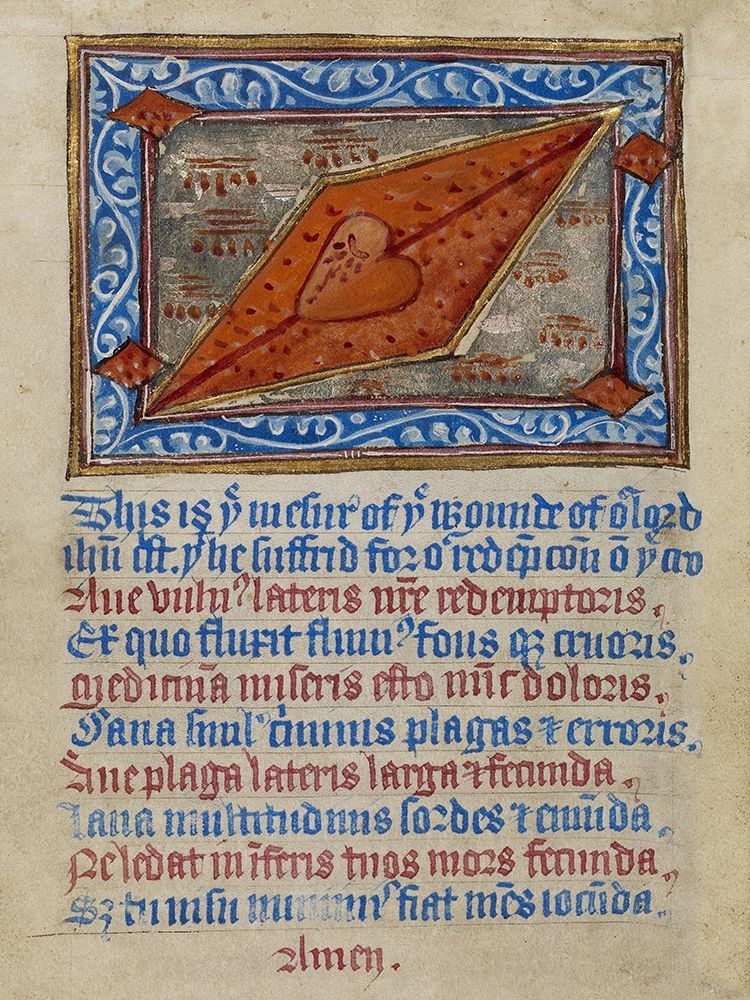 This is yͤ mesurͤ of yͤ wounde of oʳ lord
ihū c̄st. yᵗ he suffrid for oʳ redēpcōū ō yͤ cro
Aue vulnꝰ lateris nr̄e redemptoris.
Ex quo fluxit flum̄ꝰ fons qꝫ cruoris.
Medicina miseris esto doloris.
Sana simulꝰ criminis plagas ⁊ erroris.
Aue plaga lateris larga ⁊ fecunda.
Laua multitudinis sordes ⁊ emūda.
Ne ledat inf̄eris tuos mors secunda.
Sꝫ tu fiat mēs iocūda.
Amen.